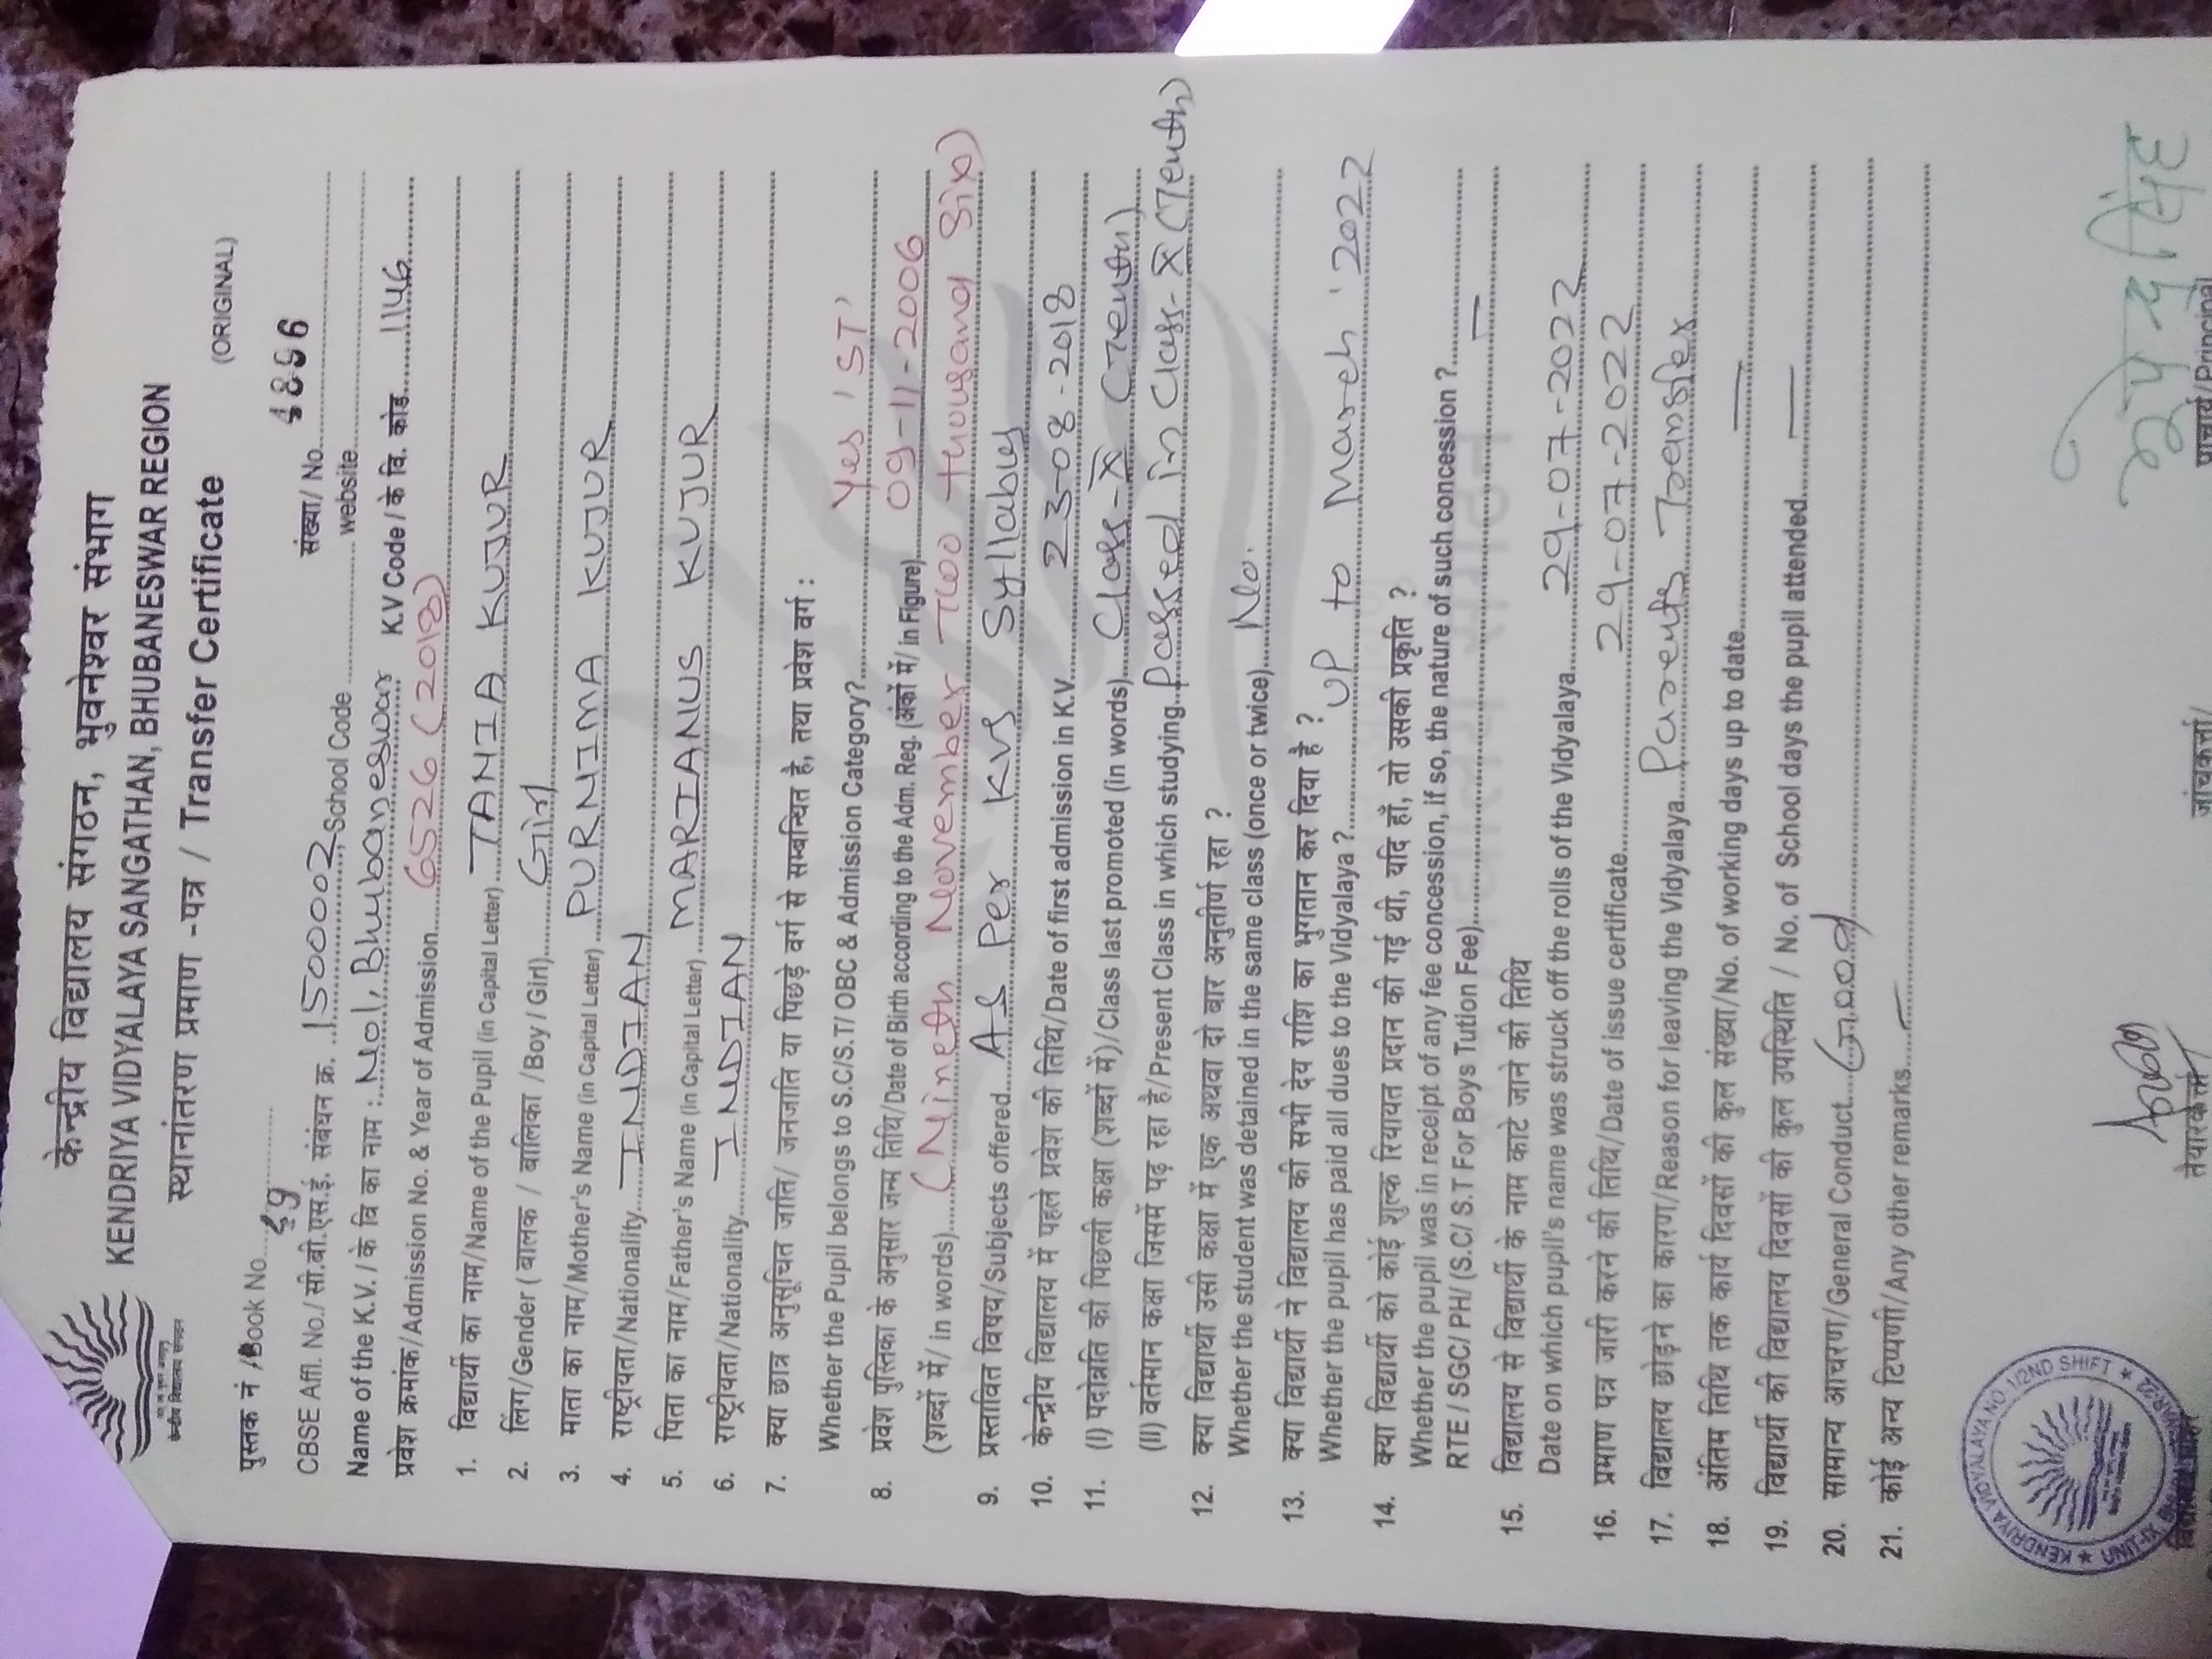 केन्द्रीय विद्यालय संगठन, भुवनेश्वर संभाग
KENDRIYA VIDYALAYA SANGATHAN, BHUBANESWAR REGION
स्थानांतरण प्रमाण -पत्र / Transfer Certificate
(ORIGINAL)
केन्द्रीय विद्यालय संगठन
पुस्तक नं /Book No. 59 संख्या/ No.
CBSE Affi. No./ सी.बी.एस.ई. संबंधन क्र. 1500002 School Code website
Name of the K.V. / के वि का नाम : No1, Bhubaneswar K.V Code / के वि. कोड. 1146
प्रवेश क्रमांक/Admission No. & Year of Admission 6526 (2018)
1. विद्यार्थी का नाम/Name of the Pupil (in Capital Letter) TANIA KUJUR
2. लिंग/Gender ( बालक / बालिका /Boy / Girl) Girl
3. माता का नाम/Mother's Name (in Capital Letter) PURNIMA KUJUR
4. राष्ट्रीयता/Nationality INDIAN
5. पिता का नाम/Father's Name (in Capital Letter) MARIANUS KUJUR
6. राष्ट्रीयता/Nationality INDIAN
7. क्या छात्र अनुसूचित जाति/ जनजाति या पिछड़े वर्ग से सम्बन्धित है, तथा प्रवेश वर्ग :
Whether the Pupil belongs to S.C/S.T/ OBC & Admission Category? Yes 'ST'
8. प्रवेश पुस्तिका के अनुसार जन्म तिथि/Date of Birth according to the Adm. Reg. (अंकों में/ in Figure) 09-11-2006
(शब्दों में/ in words) (Nineth November Two thousand Six)
9. प्रस्तावित विषय/Subjects offered As Per KVS Syllabus
10. केन्द्रीय विद्यालय में पहले प्रवेश की तिथि/Date of first admission in K.V. 23-08-2018
11. (I) पदोन्नति की पिछली कक्षा (शब्दों में)/Class last promoted (in words) Class-X (Tenth)
(II) वर्तमान कक्षा जिसमें पढ़ रहा है/Present Class in which studying Passed in Class-X (Tenth)
12. क्या विद्यार्थी उसी कक्षा में एक अथवा दो बार अनुतीर्ण रहा ?
Whether the student was detained in the same class (once or twice) No.
13. क्या विद्यार्थी ने विद्यालय की सभी देय राशि का भुगतान कर दिया है ?
Whether the pupil has paid all dues to the Vidyalaya ? UP to March '2022
14. क्या विद्यार्थी को कोई शुल्क रियायत प्रदान की गई थी, यदि हाँ, तो उसकी प्रकृति ?
Whether the pupil was in receipt of any fee concession, if so, the nature of such concession ?
RTE / SGC/ PH/ (S.C/ S.T For Boys Tution Fee) —
15. विद्यालय से विद्यार्थी के नाम काटे जाने की तिथि
Date on which pupil's name was struck off the rolls of the Vidyalaya 29-07-2022
16. प्रमाण पत्र जारी करने की तिथि/Date of issue certificate 29-07-2022
17. विद्यालय छोड़ने का कारण/Reason for leaving the Vidyalaya Parents Transfer
18. अंतिम तिथि तक कार्य दिवसों की कुल संख्या/No. of working days up to date —
19. विद्यार्थी की विद्यालय दिवसों की कुल उपस्थिति / No. of School days the pupil attended —
20. सामान्य आचरण/General Conduct Good
21. कोई अन्य टिप्पणी/Any other remarks —
KENDRIYA VIDYALAYA NO 1/2ND SHIFT
तैयारकर्ता जांचकर्ता/ प्राचार्य/Principal